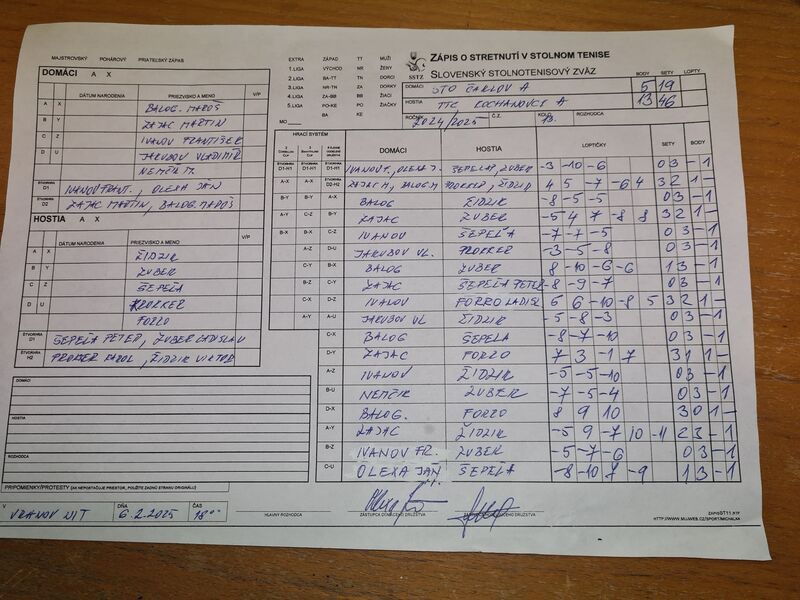 MAJSTROVSKÝ POHÁROVÝ PRIATEĽSKÝ ZÁPAS
DOMÁCI A X
DÁTUM NARODENIA PRIEZVISKO A MENO V/P
A X BALOG MAROŠ
B Y ZAJAC MARTIN
C Z IVANOV FRANTIŠEK
D U JAKUBOV VLADIMÍR
NEMČÍK M.
ŠTVORHRA D1 IVANOV FRANT., OLEXA JÁN
ŠTVORHRA D2 ZAJAC MARTIN, BALOG MAROŠ
HOSTIA A X
DÁTUM NARODENIA PRIEZVISKO A MENO V/P
A X ŽIDZIK
B Y ZUBER
C Z ŠEPEĽA
D U PROKKER
FORRO
ŠTVORHRA D1 ŠEPEĽA PETER, ZUBER LADISLAV
ŠTVORHRA H2 PROKER KAROL, ŽIDZIK VIKTOR
DOMÁCI
HOSTIA
ROZHODCA
PRIPOMIENKY/PROTESTY (AK NEPOSTAČUJE PRIESTOR, POUŽITE ZADNÚ STRANU ORIGINÁLU)
V VRANOV N/T DŇA 6.2.2025 ČAS 18°°
EXTRA ZÁPAD TT MUŽI
1.LIGA VÝCHOD NR ŽENY
2.LIGA BA-TT TN DORCI
3.LIGA NR-TN ZA DORKY
4.LIGA ZA-BB BB ŽIACI
5.LIGA PO-KE PO ŽIAČKY
BA KE
MO
SSTZ
ZÁPIS O STRETNUTÍ V STOLNOM TENISE
SLOVENSKÝ STOLNOTENISOVÝ ZVÄZ
BODY SETY LOPTY
DOMÁCI STO ČAKLOV A 5 19
HOSTIA TTC KOCHANOVCE A 13 46
ROČNÍK 2024/2025 Č.Z. KOLO 13. ROZHODCA
HRACÍ SYSTÉM DOMÁCI HOSTIA LOPTIČKY SETY BODY
ŠTVORHRA D1-H1 ŠTVORHRA D1-H1 ŠTVORHRA D1-H1 IVANOV F., OLEXA J. ŠEPEĽA P, ZUBER -3 -10 -6 0 3 - 1
A-X A-X ŠTVORHRA D2-H2 ZAJAC M, BALOG M PROKKER, ŽIDZIK 4 5 -7 -6 4 3 2 1 -
B-Y B-Y A-X BALOG ŽIDZIK -8 -5 -5 0 3 - 1
A-Y C-Z B-Y ZAJAC ZUBER -5 4 7 -8 8 3 2 1 -
B-X B-X C-Z IVANOV ŠEPEĽA -7 -7 -5 0 3 - 1
A-Z D-U JAKUBOV VL. PROKKER -3 -5 -8 0 3 - 1
C-Y B-X BALOG ZUBER -8 -10 -6 -6 1 3 - 1
B-Z C-Y ZAJAC ŠEPEĽA PETER -8 -9 -7 0 3 - 1
C-X D-Z IVANOV FORRO LADISL 6 6 -10 -8 5 3 2 1 -
A-Y A-U JAKUBOV VL ŽIDZIK -5 -8 -3 0 3 - 1
C-X BALOG ŠEPEĽA -8 -7 -10 0 3 - 1
D-Y ZAJAC FORZO 7 3 -1 7 3 1 1 -
A-Z IVANOV ŽIDZIK -5 -5 -10 0 3 - 1
B-U NEMČIK ZUBER -7 -5 -4 0 3 - 1
D-X BALOG. FORZO 8 9 10 3 0 1 -
A-Y ZAJAC ŽIDZIK -5 9 -7 10 -11 2 3 - 1
B-Z IVANOV FR. ZUBER -5 -7 -6 0 3 - 1
C-U OLEXA JÁN ŠEPEĽA -8 -10 7 -9 1 3 - 1
HLAVNÝ ROZHODCA ZÁSTUPCA DOMÁCEHO DRUŽSTVA
ZAPISST11.RTF
HTTP://WWW.MUJWEB.CZ/SPORT/MICHALKA